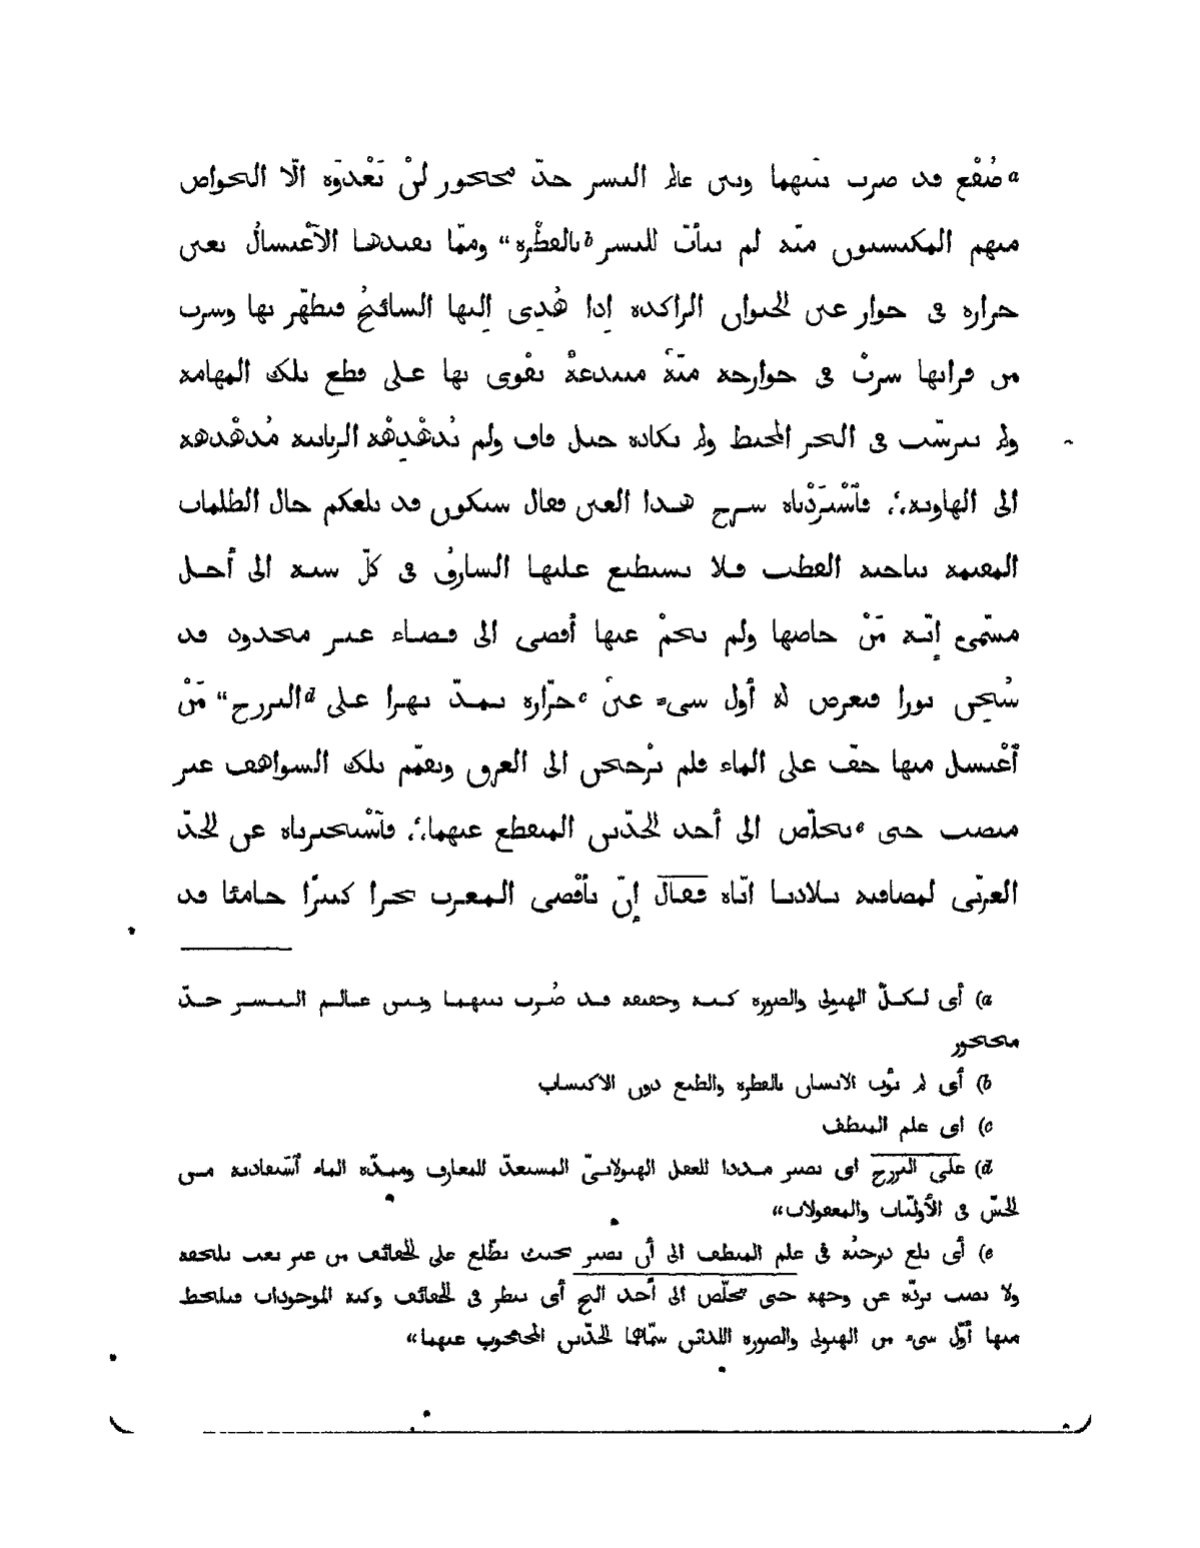 a صُقْع قد ضرب بينهما وبين عالم البشر حدّ محجور لنْ يَعْدوَه الّا الخواص
منهم المكتسبون منّة لم يتأتّ للبشر b بالفطْرة“ وممّا يفيدها الاَغْتسالُ بعين
خرارة فى جوار عين الحيوان الراكدة إذا هُدِى إليها السائحُ فتطهّر بها وشرب
من فراتها سرتْ فى جوارحه منّةٌ مبتدعةٌ يقْوى بها على قطع تلك المهامه
ولم يترسّب فى البحر المحيط ولم يكاده جبل قاف ولم تُدهْدِهْه الزبانية مُدهْدهه
الى الهاوية؛؛ فاَسْتزَدْناه شرح هذا العين فقال سيكون قد بلغكم حال الظلمات
المقيمة بناحية القطب فلا يستطيع عليها الشارقُ فى كلّ سنة الى أجل
مسّمى إنّه مَنْ خاضها ولم يحمْ عنها أفضى الى فضاء غير محدود قد
شُحِن نورا فيعرض له أول شىء عينْ c خرّارة تمدّ نهرا على d البرزخ“ مَنْ
اَغْتسل منها خفّ على الماء فلم يرْجحن الى الغرق وتقمّم تلك الشواهف غير
منصب حتى e تخلّص الى أحد الحدّين المنقطع عنهما؛؛ فاَسْتخبرناه عن الحدّ
الغربّى لمصاقبة بلادنا ايّاه فقال إنّ بأقْصى المغرب بحرا كبيرًا حامئا قد
a) أى لكلّ الهيولى والصورة كنه وحقيقة قد ضُرب بينهما وبين عالم البشر حدّ
محجور
b) أى لم يؤْب الانسان بالفطرة والطبع دون الاكتساب
c) اى علم المنطف
d) على البرزخ اى تصير مددا للعقل الهيولانىّ المستعدّ للمعارف وممدّه الماء اَسْتفادته من
الحسّ فى الأوليّات والمعقولات“
e) أى بلغ درجتُه فى علم المنطف الى أن تصير بحيث يطّلع على الحقائف من غير تعب يلحقه
ولا نصب يردّه عن وجهه حتى تخلّص الى أحد الخ أى ينظر فى الحقائف وكنه الموجودات فيلحظ
منها أوّل شىء من الهيولى والصورة اللذين سمّاهما الحدّين المحجوب عنهما“